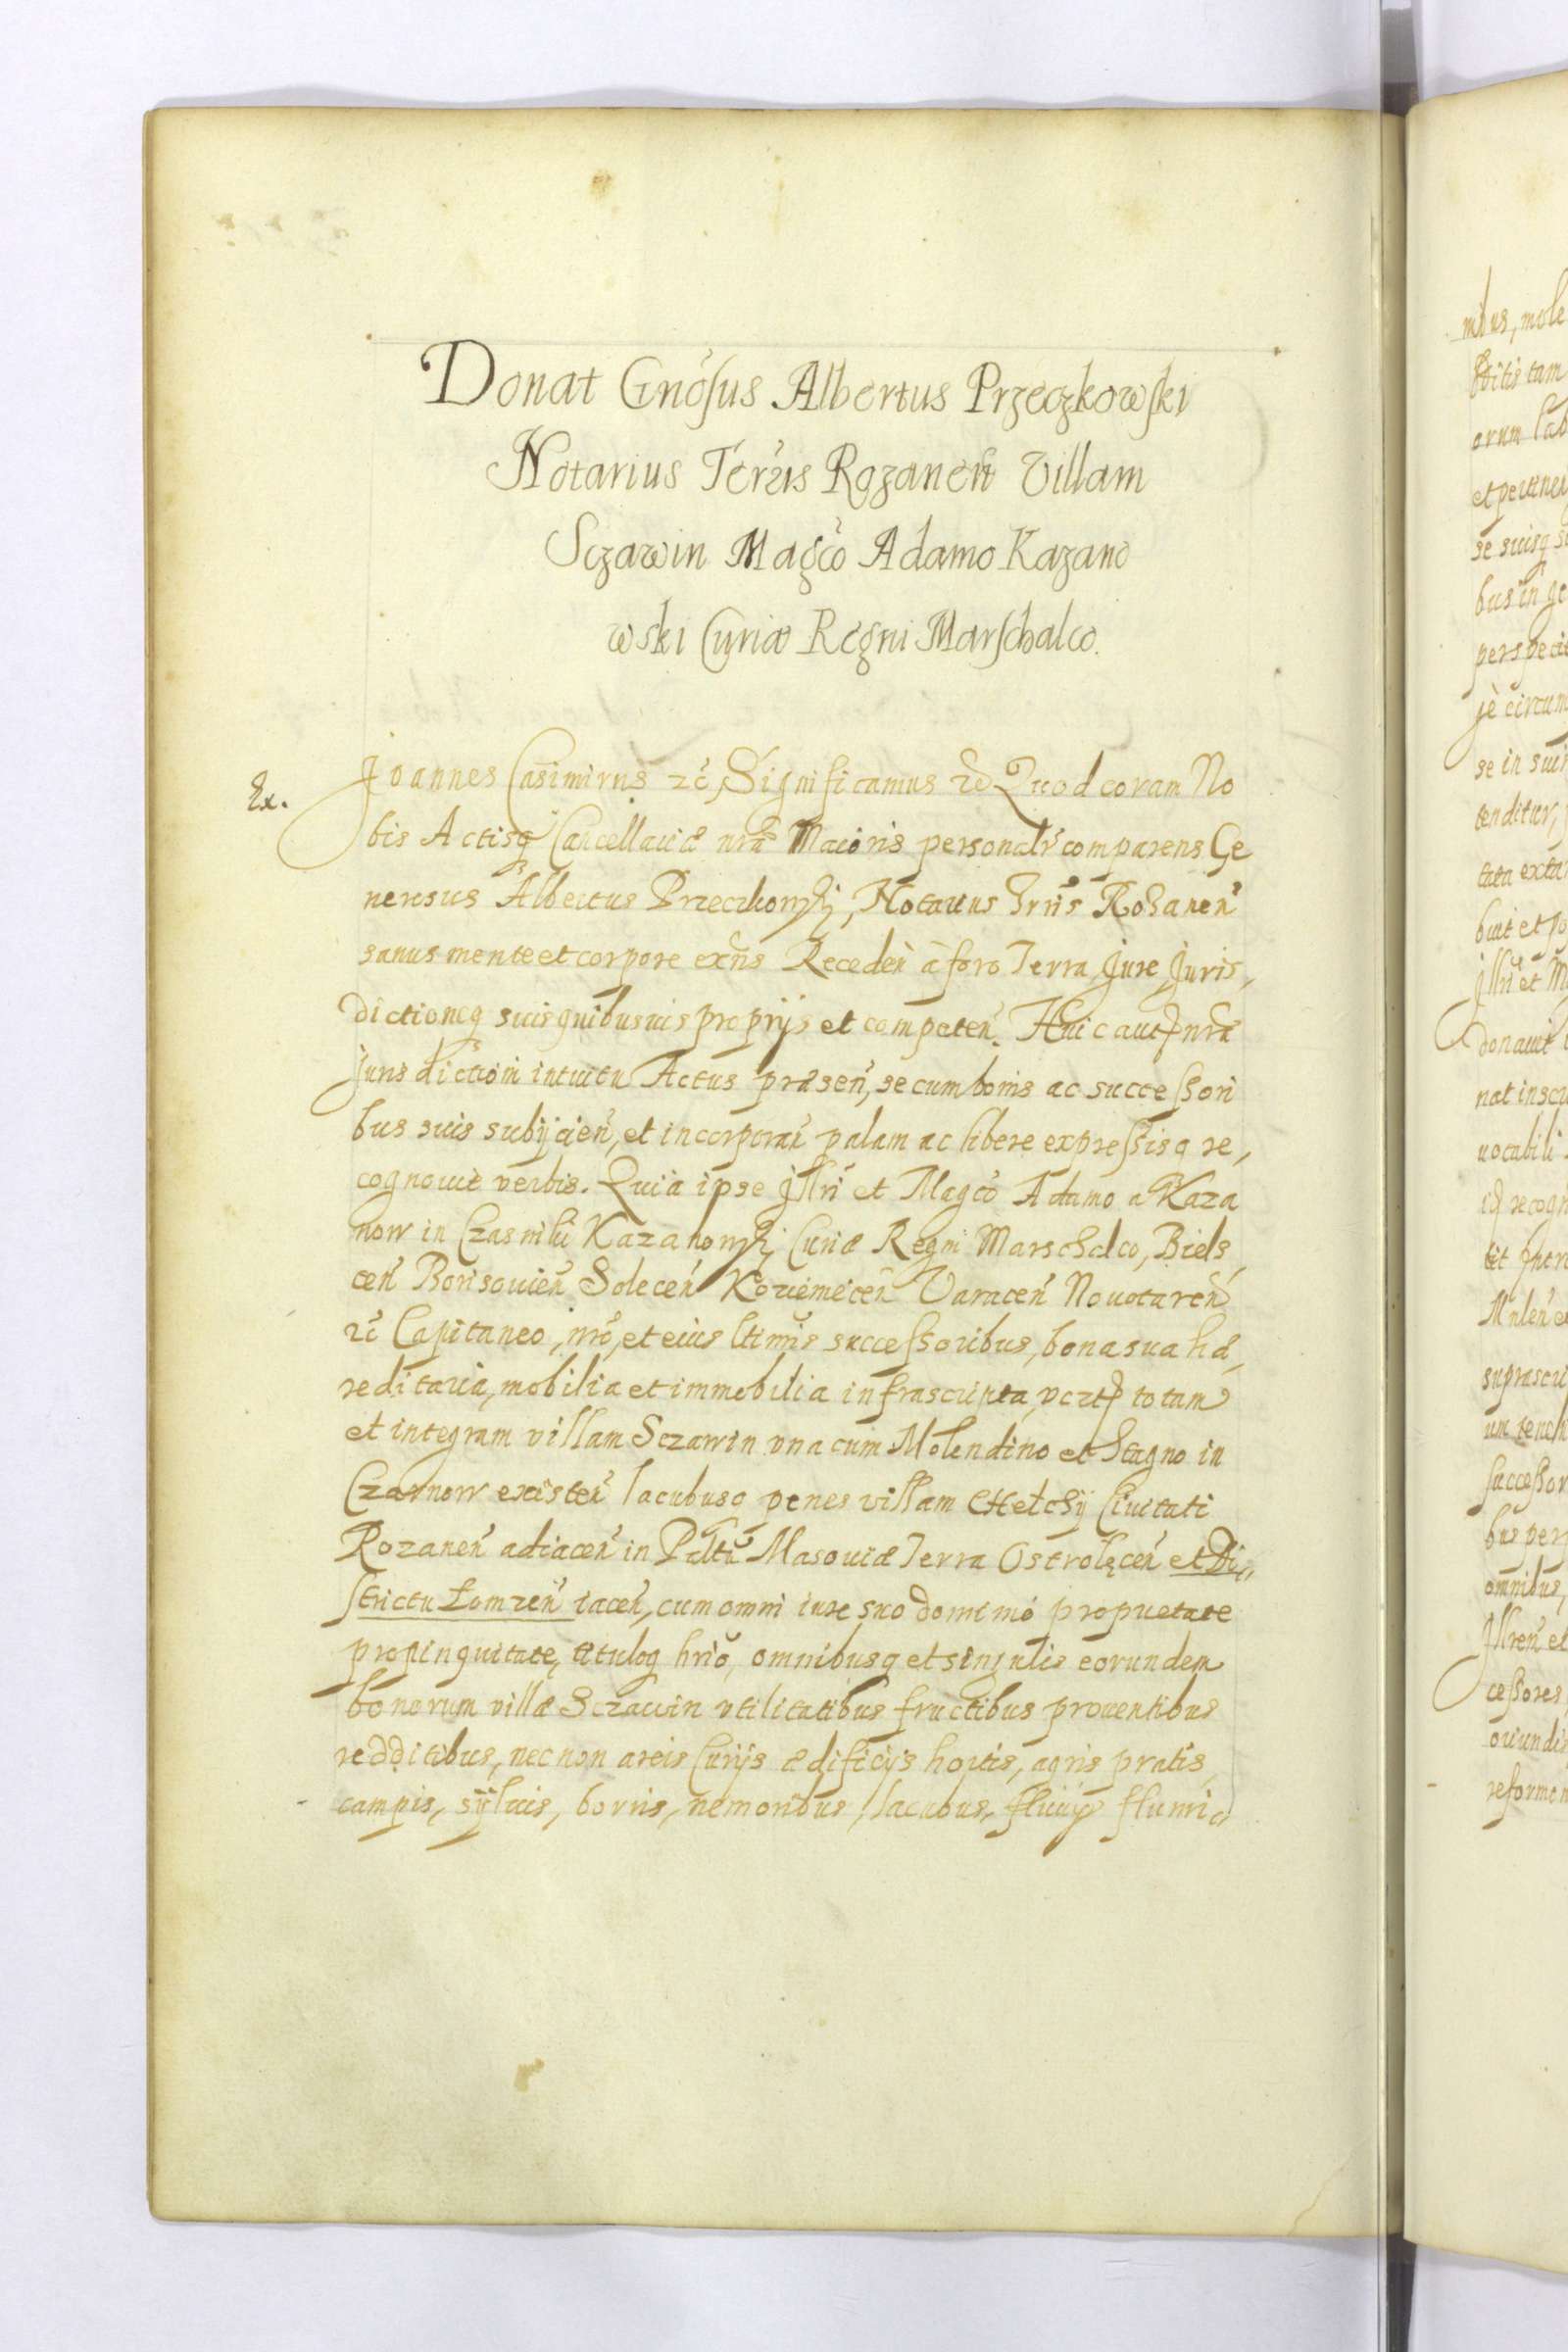 Donat Gnósus Albertus Przeczkowski
Notarius Terris Rozaneñ Villam
Sczawin Magco Adamo Kazano
wski Curiæ Regni Marschalco.
Ex.
Joannes Casimirus zc Significamus Quod coram No
bis Actisq Cancellariæ nræ Maioris personalr comparens Ge
nerosus Albertus Przeczkowski, Notarius Trris Rohanen
sanus mente et corpore exñs Receden à foro Terræ Jure, Juris,
dictioneq suis quibusuis proprijs et competen. Huic aut nræ
Jurisdictioni intuitu Actus præsen, se cum bonis ac successori
bus suis subijcien, et incorporan palam ac libere expressisq re,
cognouit verbis. Quia ipse Jllri et Magco Adamo a Kaza
now in Czasniki Kazanowski Curiæ Regni Marschalco, Biels
cen Borisouien Solecen Kozienicen Varacen Nouotaren
zc Capitaneo, nro, et eius ltimis successoribus, bona sua hæ,
reditaria, mobilia et immobilia infrascripta, vczt totam
et integram villam Sczawin vna cum Molendino et Stagno in
Czarnow existen lacubusq penes villam CHełchy Ciuitati
Rozanen adiacen in Paltu Masouiæ Terra Ostrolęcen et Di,,
strictu Łomzen iacen, cum omni iure suo dominio proprietate
propinquitate, titulog hrio, omnibusq et singulis eorundem
bonorum villæ Sczawin vtilitatibus fructibus prouentibus
redditibus, nec non areis Curijs ædificijs hortis, agris pratis,
campis, syluis, borris, nemoribus, lacubus, fluuijs flumi,,
mbus, mole
tam
orum lab
et pertinen
se suisq
bus in ge
perspecie
circum
se in sui
tenditur,
tata exta
buit et
Jllri et M
donauit
nat inscr
uocabili
recogn
tit Intr
Mulen
suprascri
um
successor
bus per
omnibus,
Jllren et
cessores
oriundis
reforman